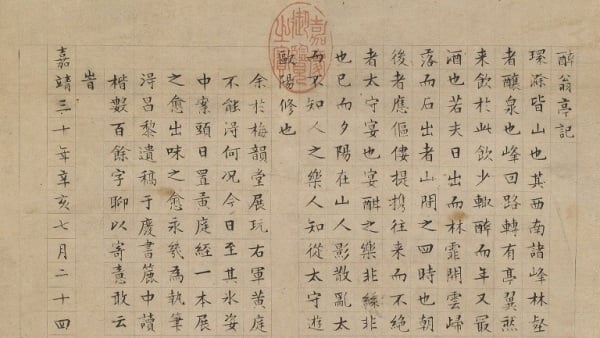 醉翁亭記
環滁皆山也其西南諸峰林壑
者釀泉也峰回路轉有亭翼然
来飲於此飲少輙醉而年又最
酒也若夫日出而林霏開雲歸
落而石出者山間之四時也朝
後者應傴僂提携往来而不絶
者太守宴也宴酣之樂非絲非
也已而夕陽在山人影散亂太
而不知人之樂人知從太守遊
歐陽修也
余於梅韻堂展玩右軍黄庭
不能淂何况今日至其氷姿
中案頭日置黄庭經一本展
之愈出味之愈永㡬為執筆
淂昌黎遺稿于廢書簏中讀
楷數百餘字聊以寄意敢云
旹
嘉靖三十年辛亥七月二十四
嘉慶御覽之寶